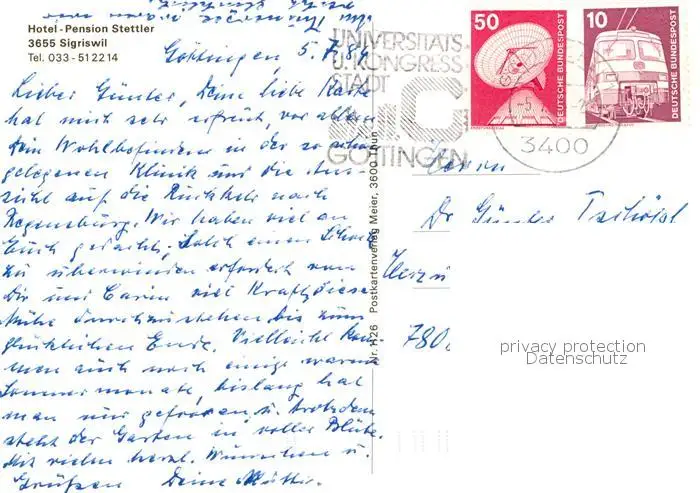 Hotel-Pension Stettler
3655 Sigriswil
Tel. 033-512214
Göttingen, 5.7.84
Lieber Günter, Deine liebe Karte
hat mich sehr erfreut, vor allem
Dein Wohlbefinden in der so schön
gelegenen Klinik und die Aus-
sicht auf die Rückkehr nach
Regensburg. Wir haben viel an
Euch gedacht. Solch einen Schock
zu überwinden erfordert von
Dir und Carin viel Kraft, diese
Mühe durchzustehen bis zum
glücklichen Ende. Vielleicht kom-
men auch noch einige warme
Sommermonate, bislang hat
man nur gefroren u. trotzdem
steht der Garten in voller Blüte.
Mit vielen herzl. Wünschen u.
Grüßen Deine Mutti.
Nr. H26 Postkartenverlag Meier, 3600 Thun
UNIVERSITÄTS-
U. KONGRESS
STADT
GÖTTINGEN
50
DEUTSCHE BUNDESPOST
10
DEUTSCHE BUNDESPOST
3400
Herrn
Dr Günter
780
privacy protection
Datenschutz